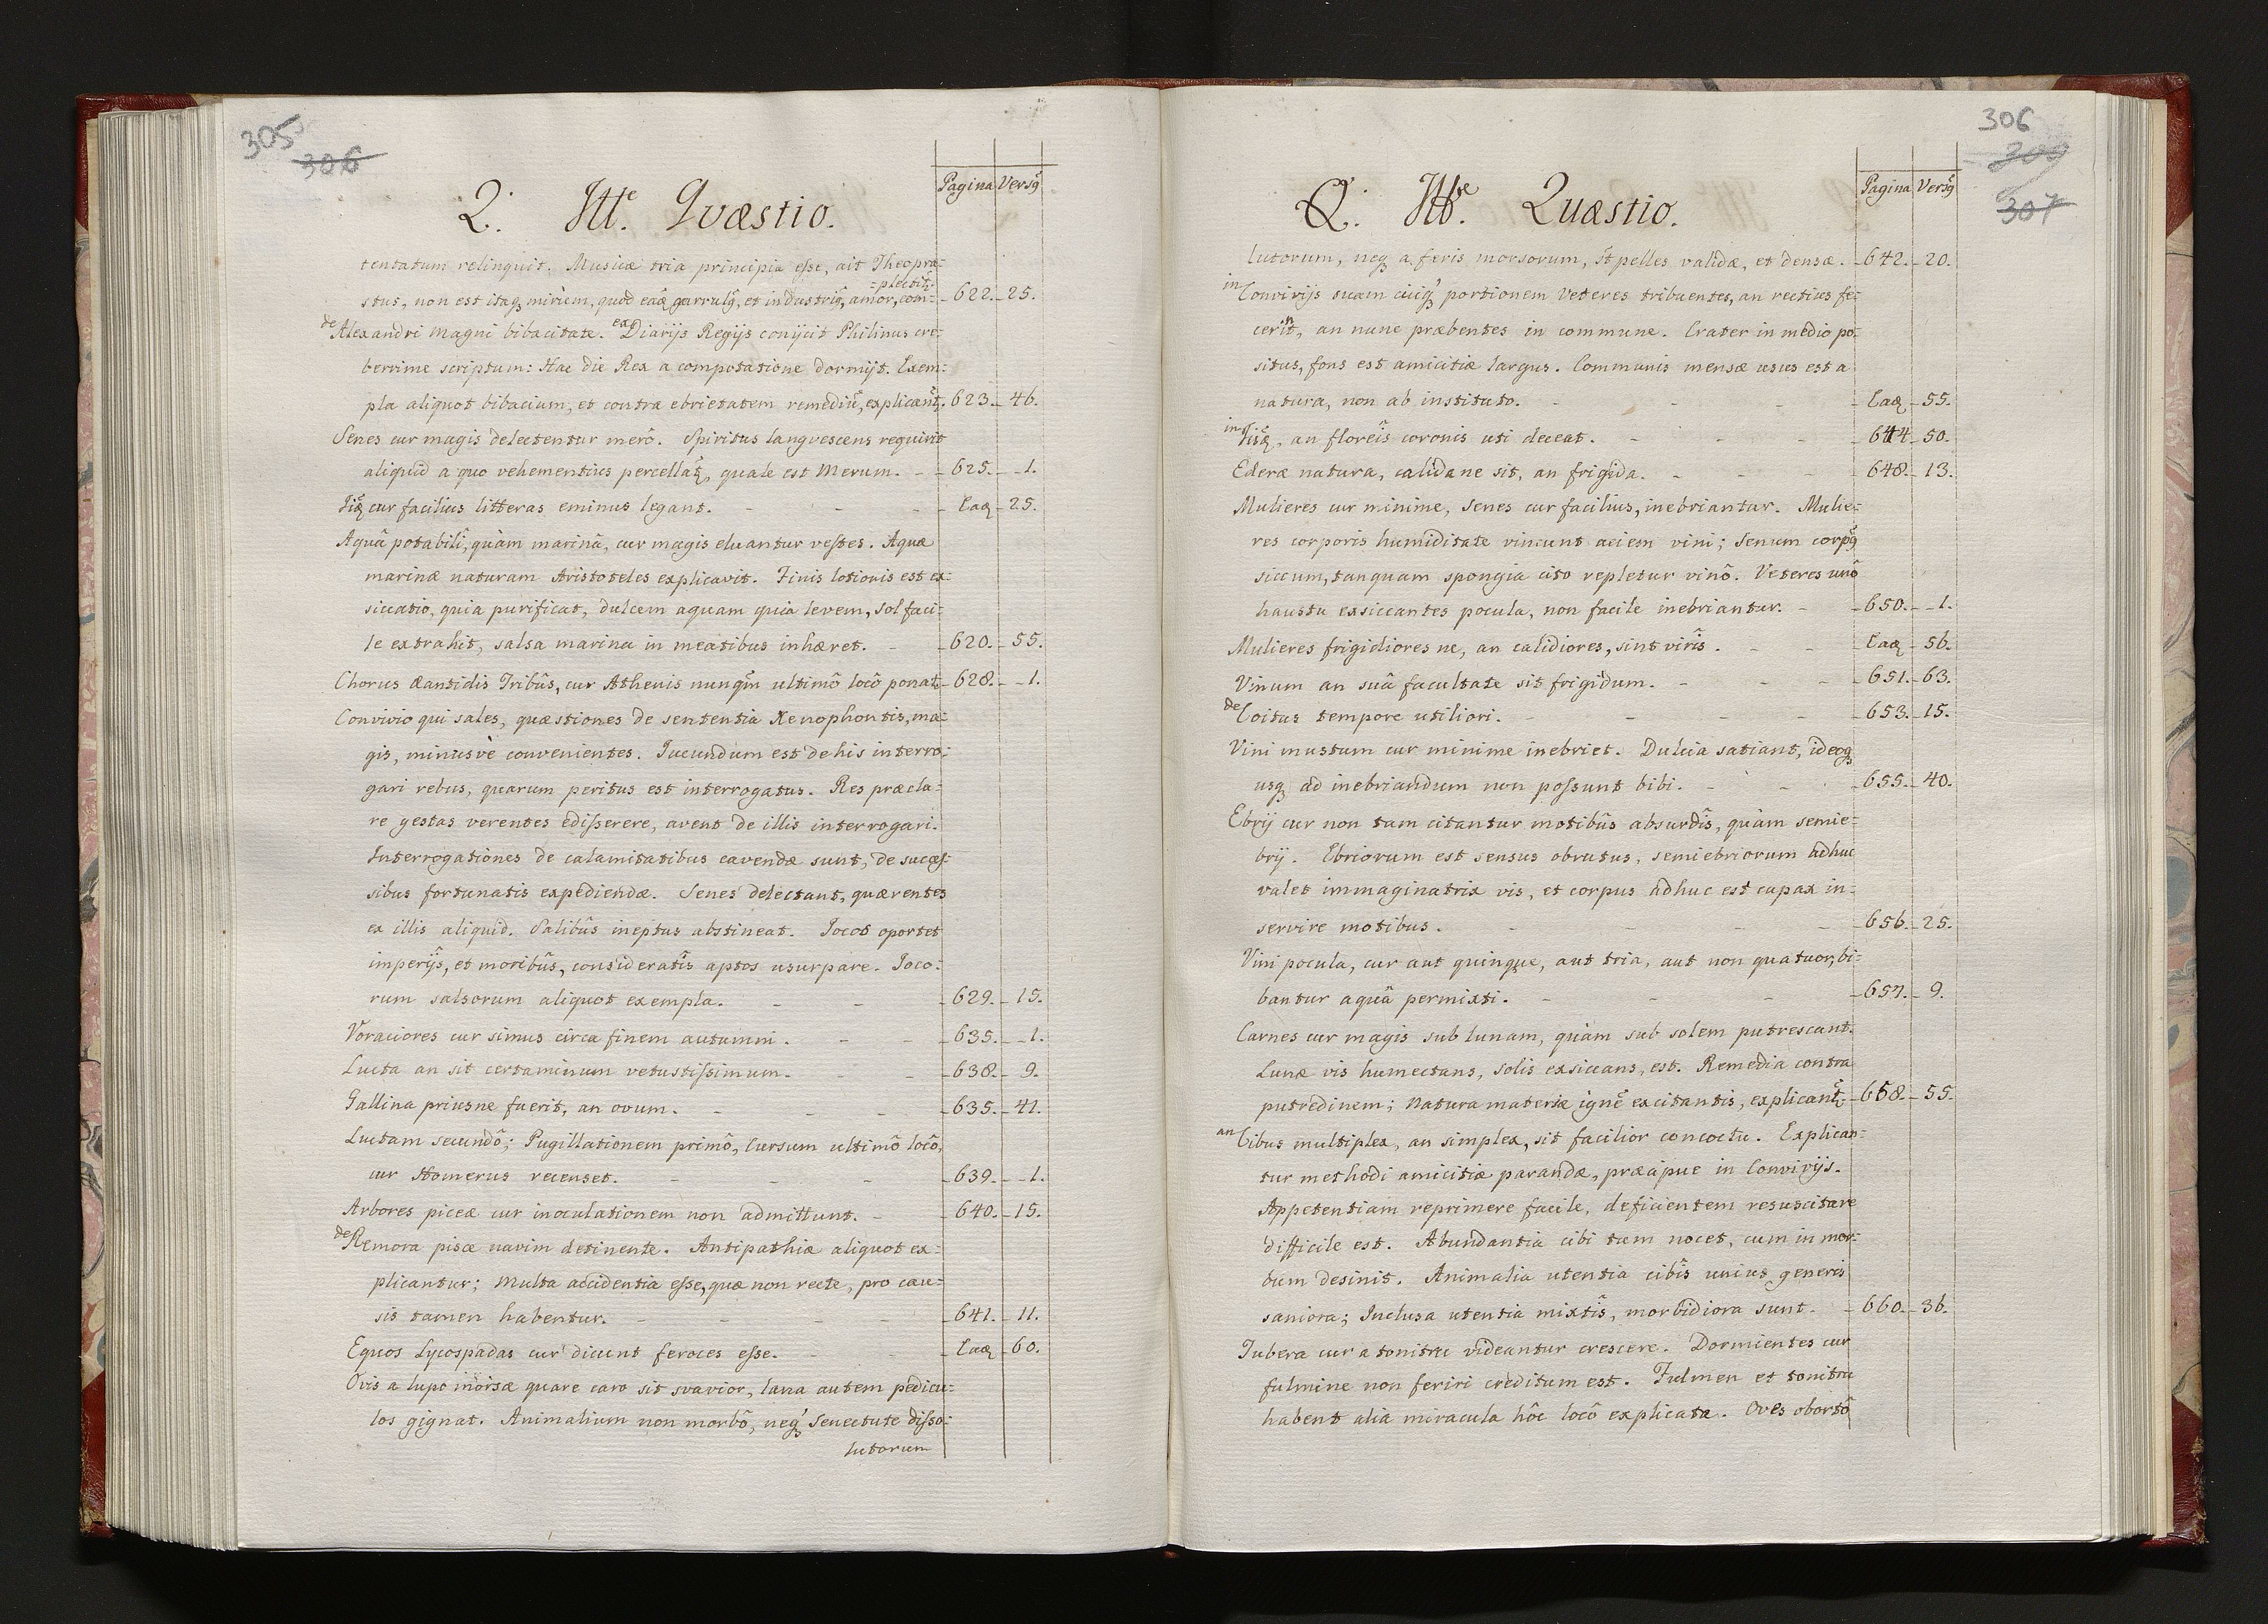 305
306
Pagina Versq̃
Q. IIIe. Qvæstio.
tentatum relinquit. Musicæ tria principia eſse, ait Theopra=
=plectit̃.
stus, non est itaq̨ mirùm, quod eâq̨ garrulq̃, et industriq̃, amor, com= 622. 25.
de Alexandri Magni bibacitate. ex Diarijs Regijs conijcit Philinus cre=
berrime scriptum: Hac die Rex a compotatione dormijt. Exem=
pla aliquot bibacium, et contra ebrietatem remediũ, explicant̃. 623. 46.
Senes cur magis delectentur merô. Spiritus langvescens requirit
aliquid a quo vehementius percellat̃, quale est Merum. - 625. 1.
Iiq̃ cur facilius litteras eminus legant. - - - Eaq̨ 25.
Aquâ potabili, quàm marinâ, cur magis eluantur veſtes. Aquæ
marinæ naturam Aristoteles explicavit. Finis lotionis est ex=
siccatio, quia purificat, dulcem aquam quia levem, sol faci=
le extrahit, salsa marina in meatibus inhæret. - 620. 55.
Chorus Æantidis Tribûs, cur Athenis nunq̃m ultimô locô ponat̃ 628. 1.
Convivio qui sales, quæstiones de sententia Xenophontis, ma=
gis, minusvè convenientes. Jucundum est de his interro=
gari rebus, quarum peritus est interrogatus. Res præcla=
re gestas verentes ediſserere, avent de illis interrogari.
Interrogationes de calamitatibus cavendæ sunt, de succeſ=
sibus fortunatis expediendæ. Senes delectant, quærentes
ex illis aliquid. Salibûs ineptus abstineat. Jocos oportet
imperijs, et moribûs, consideratîs aptos usurpare. Joco=
rum salsorum aliquot exempla. - - 629. 15.
Voraciores cur simus circa finem autumni. - - 635. 1.
Lucta an sit certaminum vetustiſsimum. - - 638. 9.
Gallina priusne fuerit, an ovum. - - - 635. 41.
Luctam secundô; Pugillationem primô, Cursum ultimô locô,
cur Homerus recenset. - - - 639. 1.
Arbores piceæ cur inoculationem non admittunt. - 640. 15.
de Remora pisce navim detinente. Antipathiæ aliquot ex=
plicantur; Multa accidentia eſse, quæ non recte, pro cau=
sis tamen habentur. - - - - 641. 11.
Equos Lycospadas cur dicunt feroces eſse. - - Eaq̨ 60.
Ovis a lupo morsæ quare caro sit svavior, lana autem pedicu=
los gignat. Animalium non morbô, neq̨ senectute diſso=
lutorum
306
309
307
Pagina Versq̃
Q. IIIe. Quæstio.
lutorum, neq̨ a feris morsorum, st̃ pelles validæ, et densæ. 642. 20.
in Convivijs suam cuiq̨ portionem Veteres tribuentes, an rectius fe=
cerint, an nunc præbentes in commune. Crater in medio po=
situs, fons est amicitiæ largus. Communis mensæ usus est a
natura, non ab instituto. - - - Eaq̨ 55.
in Iisq̃, an floreîs coronis uti deceat. - - - 644 50.
Ederæ natura, calida ne sit, an frigida. - - - 648. 13.
Mulieres cur minime, Senes cur facilius, inebriantur. Mulie=
res corporis humiditate vincunt aciem vini; Senum corpq̃
siccum, tanquam spongia cito repletur vinô. Veteres unô
haustu exsiccantes pocula, non facile inebriantur. - 650. 1.
Mulieres frigidiores ne, an calidiores, sint virîs. - - Eaq̨ 56.
Vinum an suâ facultate sit frigidum. - - - 651. 63.
de Coitus tempore utiliori. - - - - 653. 15.
Vini mustum cur minime inebriet. Dulcia satiant, ideoq̨
usq̨ ad inebriandum non poſsunt bibi. - - 655. 40.
Ebrij cur non tam citantur motibûs absurdîs, quàm semie=
brij. Ebriorum est sensus obrutus, semiebriorum adhuc
valet immaginatrix vis, et corpus adhuc est capax in=
servire motibus. - - - - 656. 25.
Vini pocula, cur aut quinque, aut tria, aut non quatuor, bi=
bantur aquâ permixti. - - - 657. 9.
Carnes cur magis sub lunam, quàm sub solem putrescant.
Lunæ vis humectans, solis exsiccans, est. Remedia contra
putredinem; Natura materiæ ignẽ excitantis, explicant̃. 658. 55.
an Cibus multiplex, an simplex, sit facilior concoctu. Explican=
tur methodi amicitiæ parandæ, præcipue in Convivijs.
Appetentiam reprimere facile, deficientem resuscitare
difficile est. Abundantia cibi tum nocet, cum in mor=
bum desinit. Animalia utentia cibîs unius generis
saniora; Inclusa utentia mixtîs, morbidiora sunt. - 660. 36.
Tubera cur a tonitru videantur crescere. Dormientes cur
fulmine non feriri creditum est. Fulmen et tonitru
habent alia miracula hôc locô explicata. Oves obortô